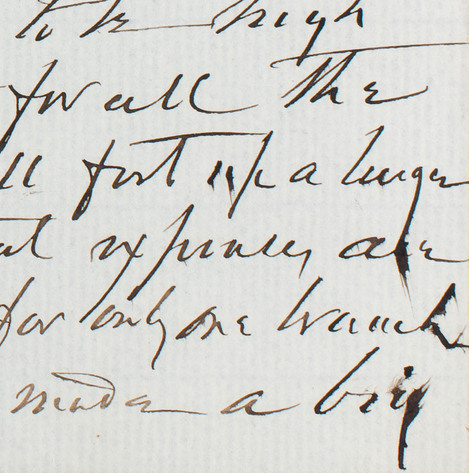 to be high
for all the
ll foot up a larger
expenses are
for only one branch
made a big